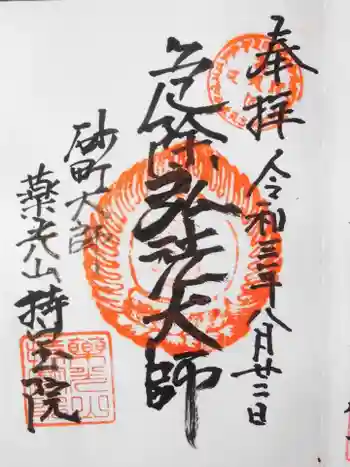 奉拝 令和三年八月廿二日
厄除弘法大師
砂町大師
薬光山 持宝院